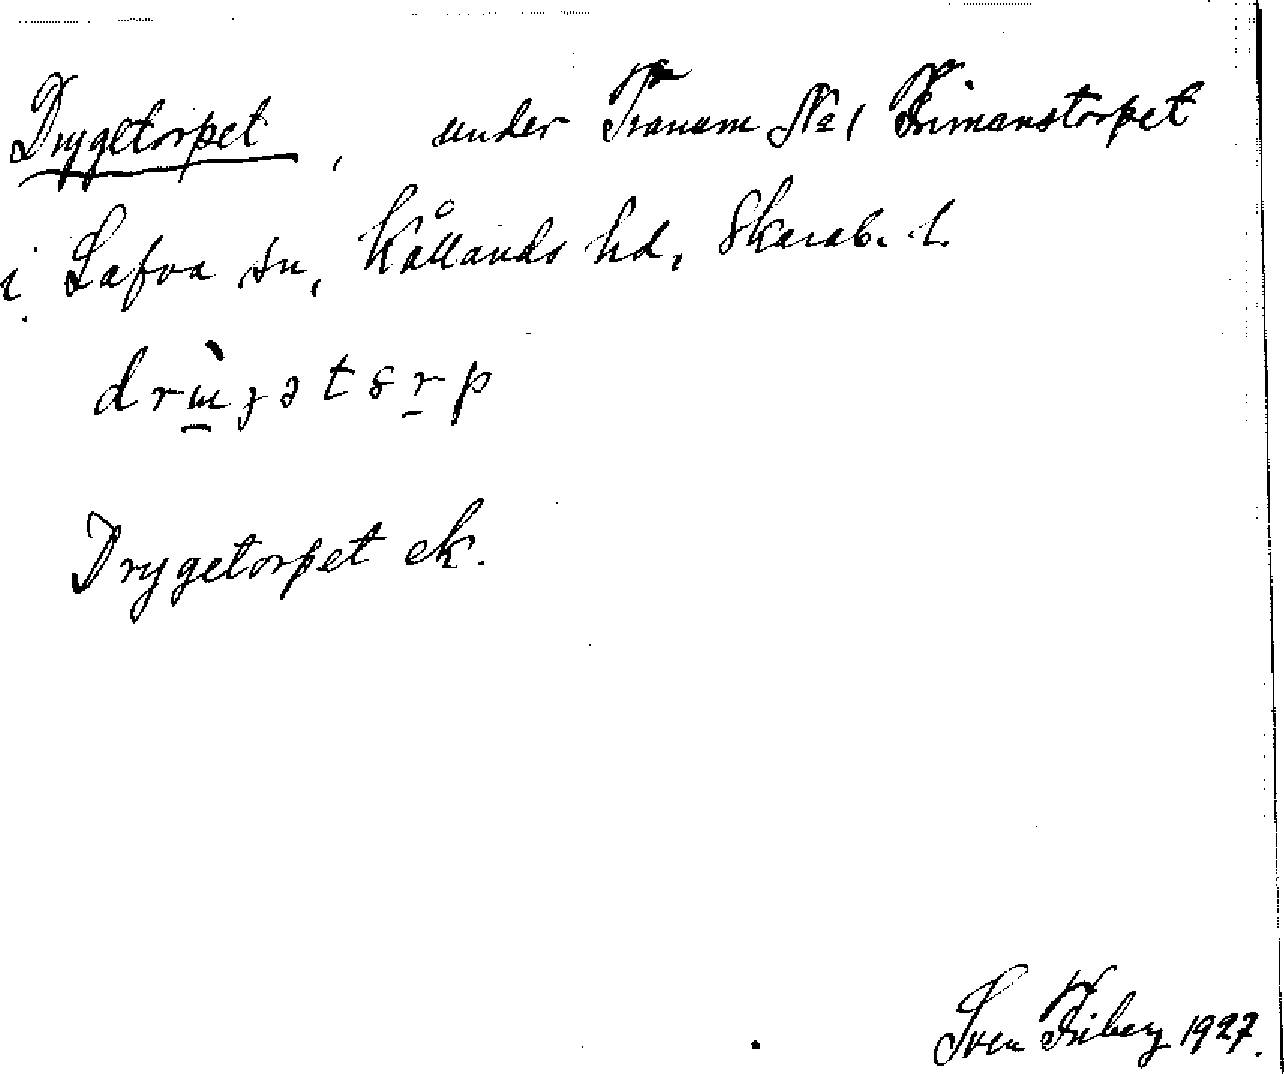 Drygetorpet, under Tranum No 1 Frimanstorpet
i Lafva sn, Kållands hd, Skarab. l.
drɯ̀ɡətɞrp
Drygetorpet ek.
Sven Friberg 1927.